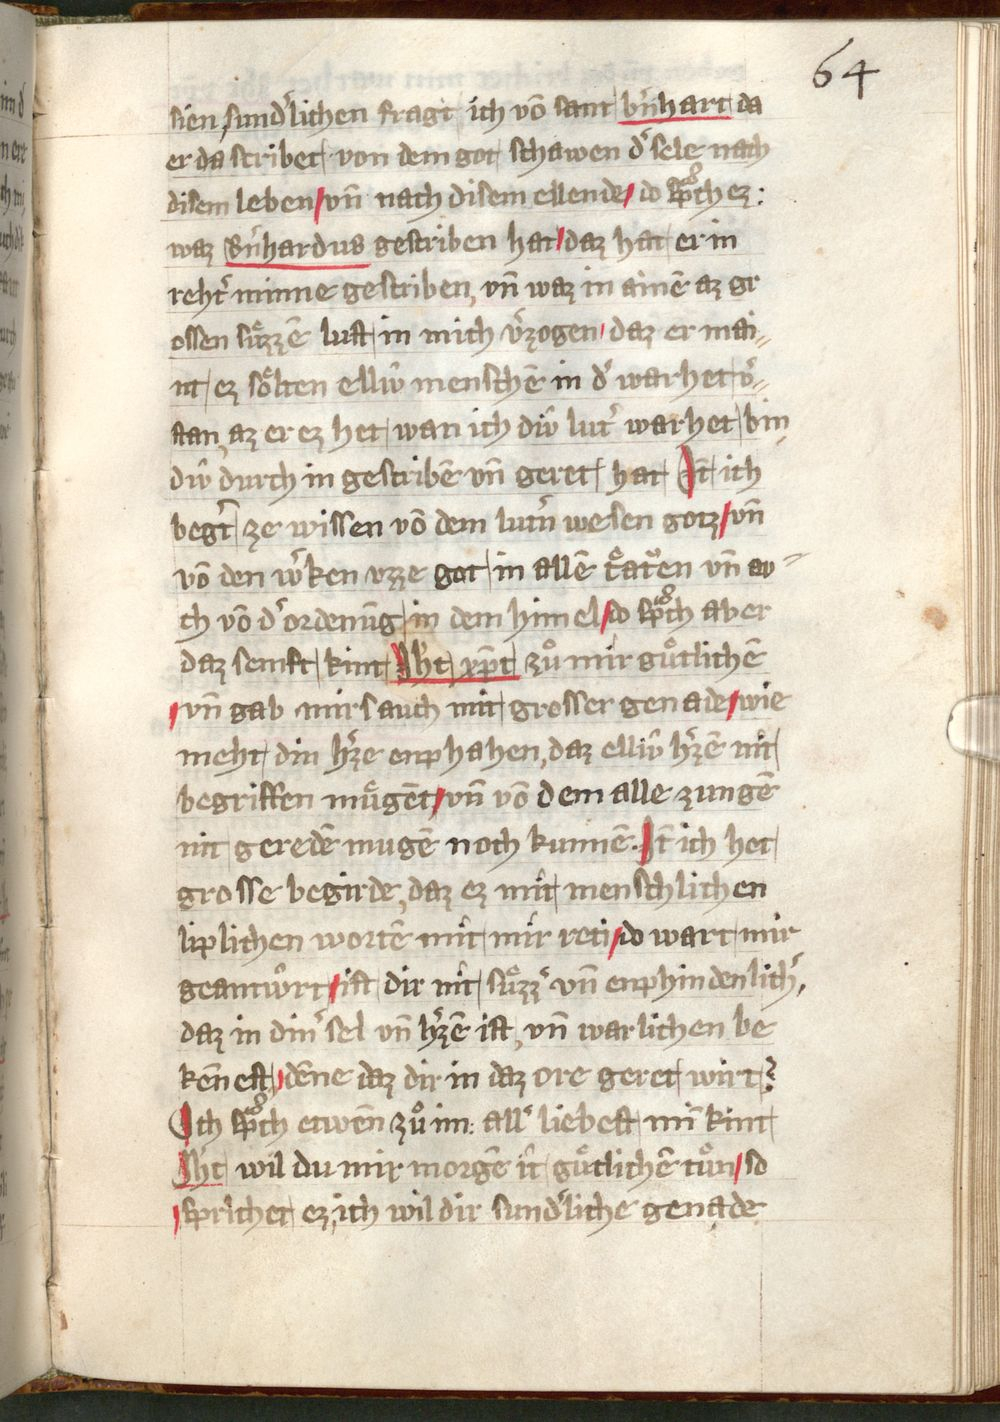 64
sien sund᷑lichen fragt ich vō sant b᷑nhart da
er da scribet von dem got schawen d᷑ sele nach
disem leben / vn̄ nach disem ellende / do spͣͦch ez :
waz B᷑nhardus gescriben hat / daz hat er in
reht᷑ minne gescriben, vn̄ waz in ainē az gr
ossen sůzzē lust in mich v᷑zogen / daz er mai„
nt ez sôlten elliv̂ menschē in d᷑ warhet v᷑„
stan, az er ez het wan ich div̂ lut᷑ warhet bin
div̂ durch in gescribē vn̄ geret hat It̄ ich
beg᷑t ze wissen vō dem lut᷑n wesen gotz / vn̄
vō den w᷑ken vzze got in allē tͤaten vn̄ av
ch vō d᷑ ordenūg in dem himel / do spͣͦch aber
daz semft kint Jhc̄t xp̄c̄t zů mir gůtlichē
/ vn̄ gab mirs auch mit grosser genade / wie
meht din h᷑ze enphahen, daz elliv̂ h᷑zē nit
begriffen mûgēt / vn̄ vō dem alle zungē
nit geredē mugē noch kunnē. It̄ ich het
grosse begirde, daz ez mit menschlichen
liplichen wortē mit mir reti / do wart mir
geantwûrt / ist dir nit sůzz᷑ vn̄ enphindenlich᷑,
daz in din᷑ sel vn̄ h᷑zē ist, vn̄ warlichen be
kēnest / dēne daz dir in daz ore geret wirt?
Ich spͣͦch etwēn zů im: all᷑ liebest mī kint
Jhc̄t wil du mir morgē it gůtlichē tůn / so
/ sprichet ez, ich wil dir sund᷑liche genade